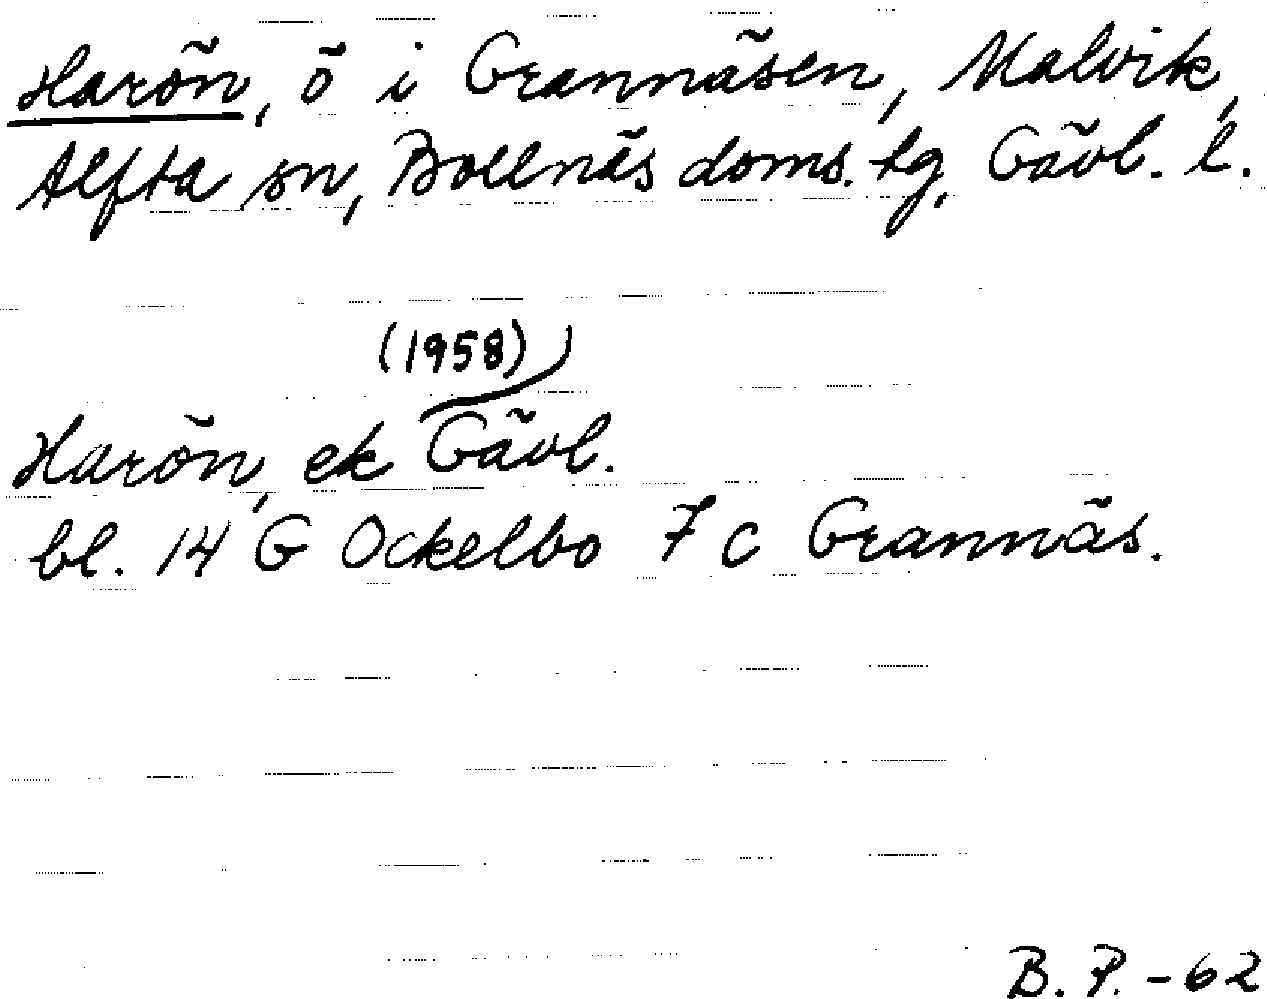 Harön, ö i Grannäsen, Malvik,
Alfta sn, Bollnäs doms. tg, Gävl. l.
(1958)
Harön, ek Gävl.
bl. 14 G Ockelbo 7 c Grannäs.
B. P. - 62